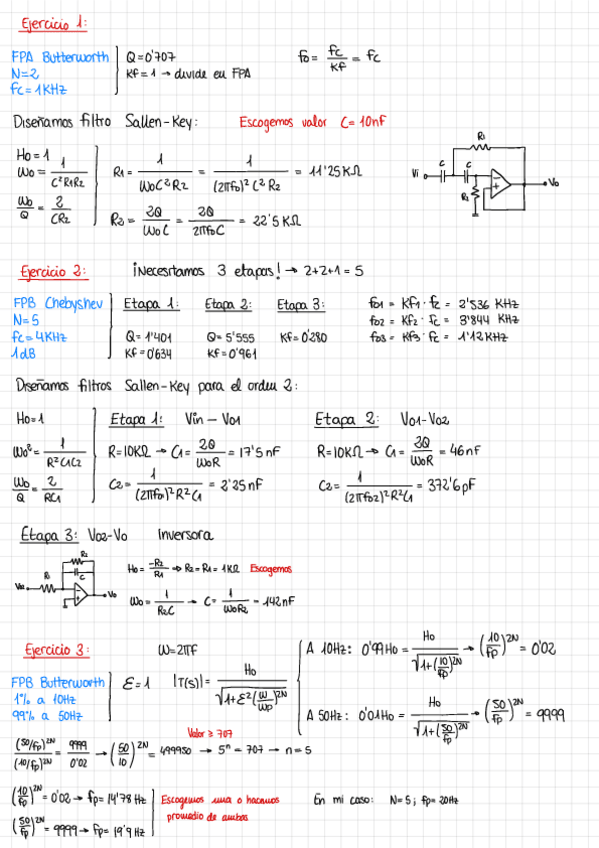 Ejercicio 1:
FPA Butterworth
N=2
fc = 1KHz
Q=0'707
Kf=1 → divide en FPA
fo = fc/Kf = fc
Diseñamos filtro Sallen-Key:
Escogemos valor C= 10nF
Ho=1
Wo = 1/C²R1R2
Wo/Q = 2/CR2
R1 = 1/WoC²R2 = 1/(2πfo)²C²R2 = 11'25KΩ
R2 = 2Q/WoC = 2Q/2πfoC = 22'5KΩ
R1
C
C
Vi
R2
Vo
Ejercicio 2:
¡Necesitamos 3 etapas! → 2+2+1 = 5
FPB Chebyshev
N=5
fc=4KHz
1dB
Etapa 1:
Q=1'401
Kf=0'634
Etapa 2:
Q=5'555
Kf=0'961
Etapa 3:
Kf=0'280
fo1 = Kf1 · fc = 2'536 KHz
fo2 = Kf2 · fc = 3'844 KHz
fo3 = Kf3 · fc = 1'12KHz
Diseñamos filtros Sallen-Key para el orden 2:
Ho=1
Wo² = 1/R²C1C2
Wo/Q = 2/RC1
Etapa 1: Vin – Vo1
R=10KΩ → C1 = 2Q/WoR = 17'5nF
C2 = 1/(2πfo1)²R²C1 = 2'25nF
Etapa 2: Vo1-Vo2
R=10KΩ → C1 = 2Q/WoR = 46nF
C2 = 1/(2πfo2)²R²C1 = 372'6pF
Etapa 3: Vo2-Vo Inversora
R2
C
R1
Vo2
Vo
Ho = -R2/R1 → R2=R1=1KΩ Escogemos
Wo = 1/R2C → C = 1/WoR2 = 142nF
Ejercicio 3:
W=2πf
FPB Butterworth
1% a 10Hz
99% a 50Hz
Ɛ=1
|T(s)| = Ho/√(1+Ɛ²(W/Wp)^2N)
A 10Hz: 0'99Ho = Ho/√(1+(10/fp)^2N) → (10/fp)^2N = 0'02
A 50Hz: 0'01Ho = Ho/√(1+(50/fp)^2N) → (50/fp)^2N = 9999
Valor ≥ 707
(50/fp)^2N/(10/fp)^2N = 9999/0'02 → (50/10)^2N = 499950 → 5^n = 707 → n=5
(10/fp)^2N = 0'02 → fp=14'78Hz
(50/fp)^2N = 9999 → fp= 19'9Hz
Escogemos una o hacemos
promedio de ambos
En mi caso: N=5; fp= 20Hz